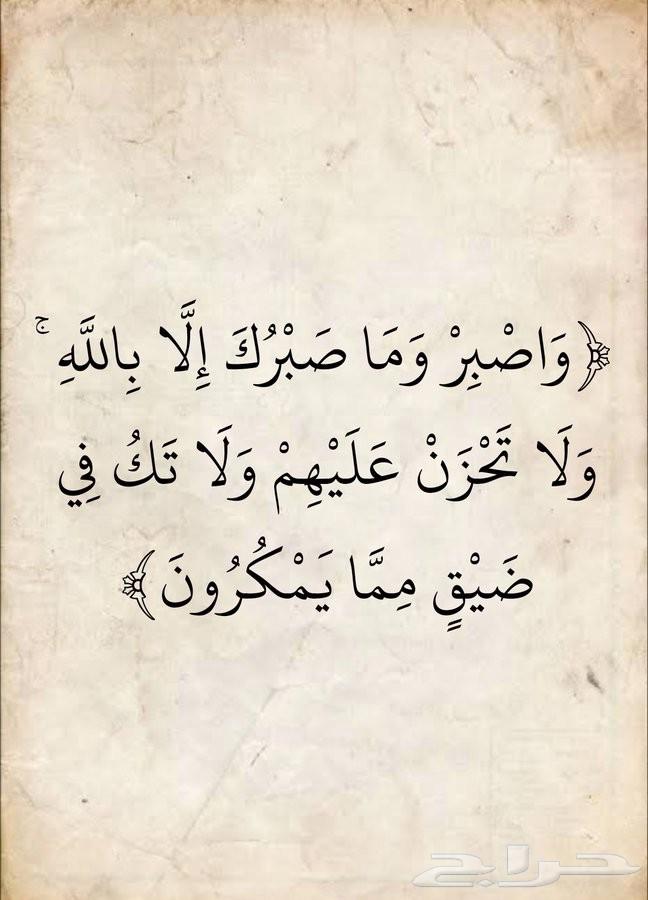 ﴿ وَاصْبِرْ وَمَا صَبْرُكَ إِلَّا بِاللَّهِ ۚ
وَلَا تَحْزَنْ عَلَيْهِمْ وَلَا تَكُ فِي
ضَيْقٍ مِمَّا يَمْكُرُونَ ﴾
حراج